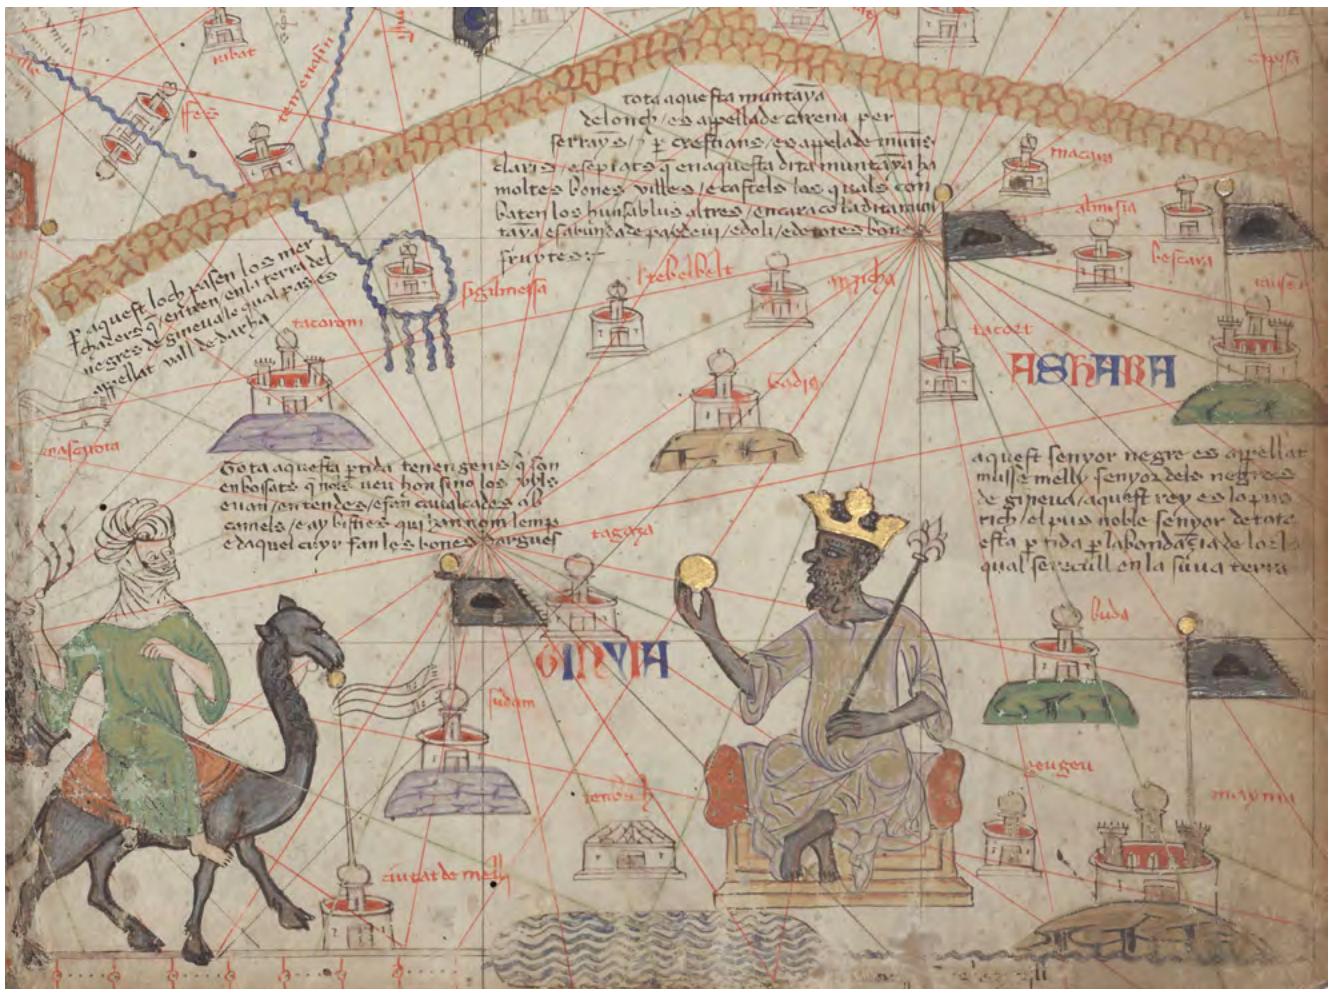 ribat
fes
tota aquesta muntaỹa
de lonch / es appellade carena per
serrayns / ỹ p crestians / es appelade muns
claris / e sepiats q̃ en aquesta dita muntaỹa ha
moltes bones villes / e castels los quals con
baten los huns ab lus altres / encara co la dita mun
taya es abunda de pa e de vi / e doli / e de totes bones
fruytes
macara
almsia
bescara
p aquest loch pasen los mer
chaders q̃ / entren / en la terra del
negres de gineva le qual pas es
appellat vall de darha
sigilmessa
tacoroni
tacort
ASHARA
tota aquesta ptida tenen gens q̃ son
enbossats q̃ nols veu hon sino los uyls
e van / en tendes / e fan cavalcades ab
camels / e ay bisties qui han nom lemp
e daquel cuyr fan les bones dargues
aquest senyor negre es appellat
musse melly senyor dels negres
de gineva / aquest rey es lo pus
rich / el pus noble senyor de tota
esta ptida p labondaçia de lor lo
qual se recull en la suua terra
tagaza
GINYIA
buda
sudam
geugeu
mayma
tenbuch
ciutat de melly